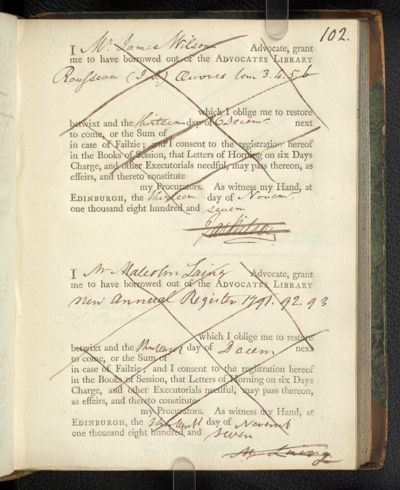 102.
I Mr. James Wilson Advocate, grant
me to have borrowed out of the ADVOCATES LIBRARY
Rousseau (J. J.) Œuvres tom 3. 4. 5. 6
which I oblige me to restore
betwixt and the thirteen day of Decem.r next
to come, or the Sum of
in case of Failzie; and I consent to the registration hereof
in the Books of Session, that Letters of Horning on six Days
Charge, and other Executorials needful, may pass thereon, as
effeirs, and thereto constitute
my Procurators. As witness my Hand, at
EDINBURGH, the thirteen day of Novem.r
one thousand eight hundred and seven
Jas Wilson
I Mr Malcolm Laing Advocate, grant
me to have borrowed out of the ADVOCATES LIBRARY
new Annual Register 1791. 92. 93
which I oblige me to restore
betwixt and the day of Decem next
to come, or the Sum of
in case of Failzie; and I consent to the registration hereof
in the Books of Session, that Letters of Horning on six Days
Charge, and other Executorials needful, may pass thereon,
as effeirs, and thereto constitute
my Procurators. As witness my Hand, at
EDINBURGH, the day of Novemb
one thousand eight hundred and seven
M. Laing